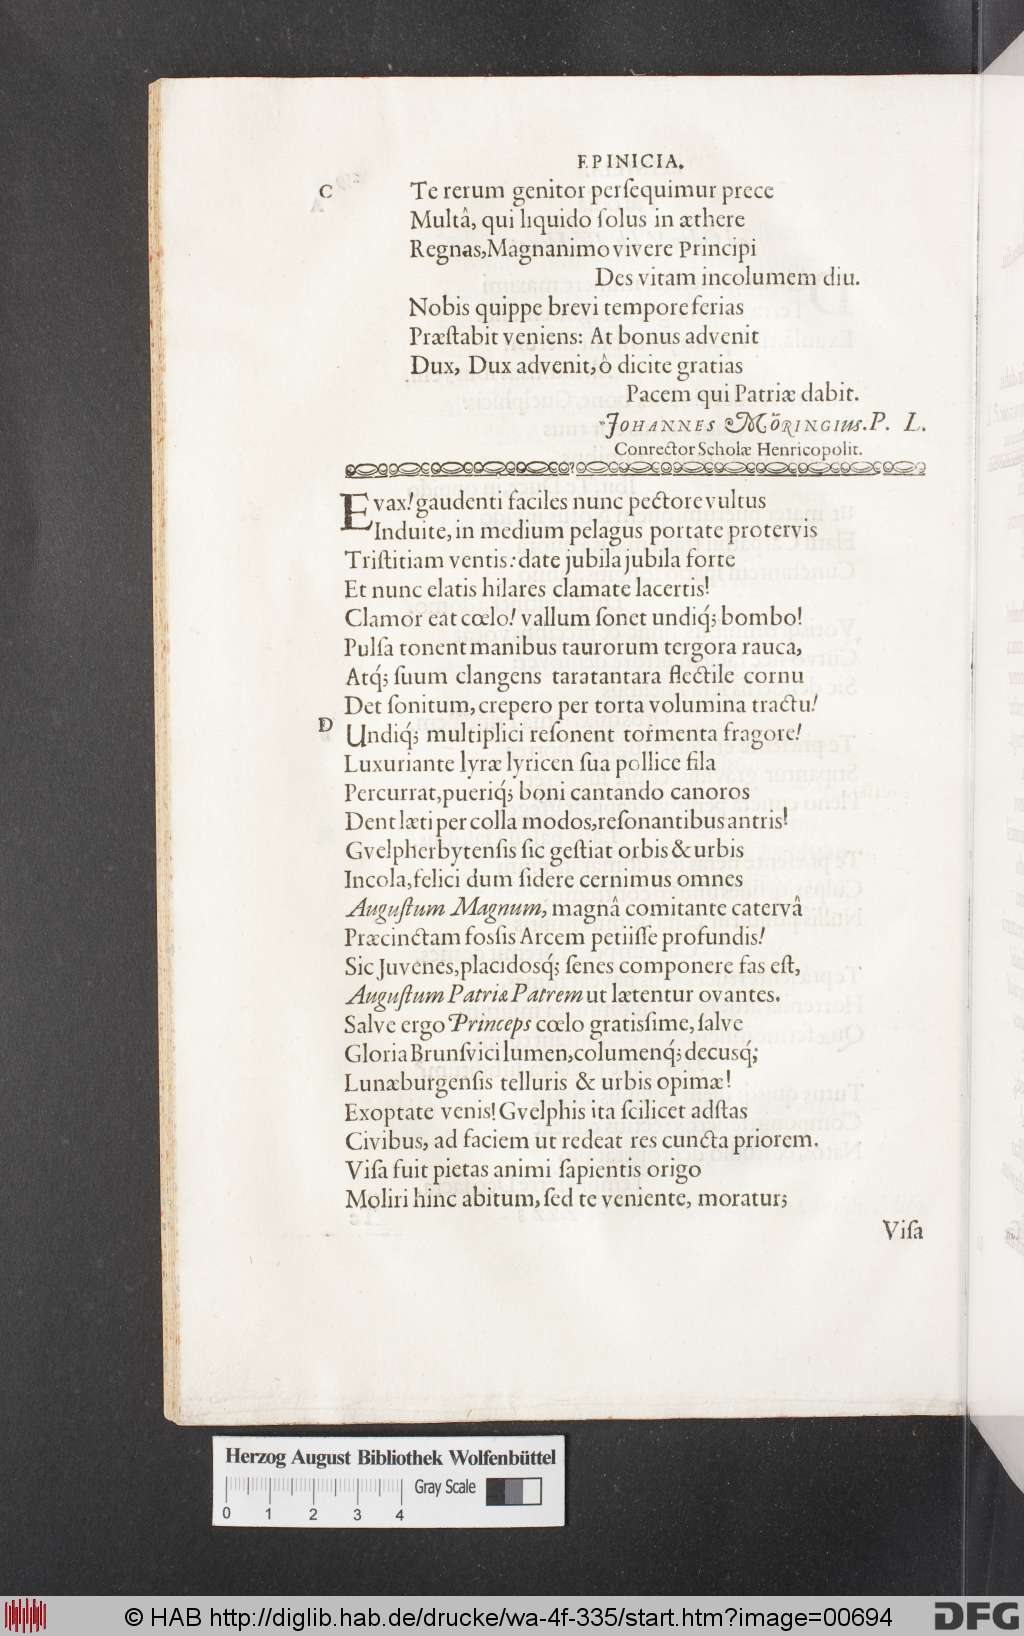 EPINICIA.
C Te rerum genitor perſequimur prece
Multâ, qui liquido ſolus in æthere
Regnas, Magnanimo vivere Principi
Des vitam incolumem diu.
Nobis quippe brevi tempore ferias
Præſtabit veniens: At bonus advenit
Dux, Dux advenit, ô dicite gratias
Pacem qui Patriæ dabit.
JOHANNES MÖRINGIus. P. L.
Conrector Scholæ Henricopolit.
Evax! gaudenti faciles nunc pectore vultus
Induite, in medium pelagus portate protervis
Triſtitiam ventis: date jubila jubila forte
Et nunc elatis hilares clamate lacertis!
Clamor eat cœlo! vallum ſonet undiq́; bombo!
Pulſa tonent manibus taurorum tergora rauca,
Atq́; ſuum clangens taratantara flectile cornu
Det ſonitum, crepero per torta volumina tractu!
D Undiq́; multiplici reſonent tormenta fragore!
Luxuriante lyræ lyricen ſua pollice fila
Percurrat, pueriq́; boni cantando canoros
Dent læti per colla modos, reſonantibus antris!
Gvelpherbytenſis ſic geſtiat orbis & urbis
Incola, felici dum ſidere cernimus omnes
Auguſtum Magnum, magnâ comitante catervâ
Præcinctam foſsis Arcem petiiſſe profundis!
Sic Juvenes, placidosq́; ſenes componere fas eſt,
Auguſtum Patriæ Patrem ut lætentur ovantes.
Salve ergo Princeps cœlo gratiſsime, ſalve
Gloria Brunſvici lumen, columenq́; decusq́;
Lunæburgenſis telluris & urbis opimæ!
Exoptate venis! Gvelphis ita ſcilicet adſtas
Civibus, ad faciem ut redeat res cuncta priorem.
Viſa fuit pietas animi ſapientis origo
Moliri hinc abitum, ſed te veniente, moratur;
Viſa
Herzog August Bibliothek Wolfenbüttel
Gray Scale
0 1 2 3 4
© HAB http://diglib.hab.de/drucke/wa-4f-335/start.htm?image=00694
DFG